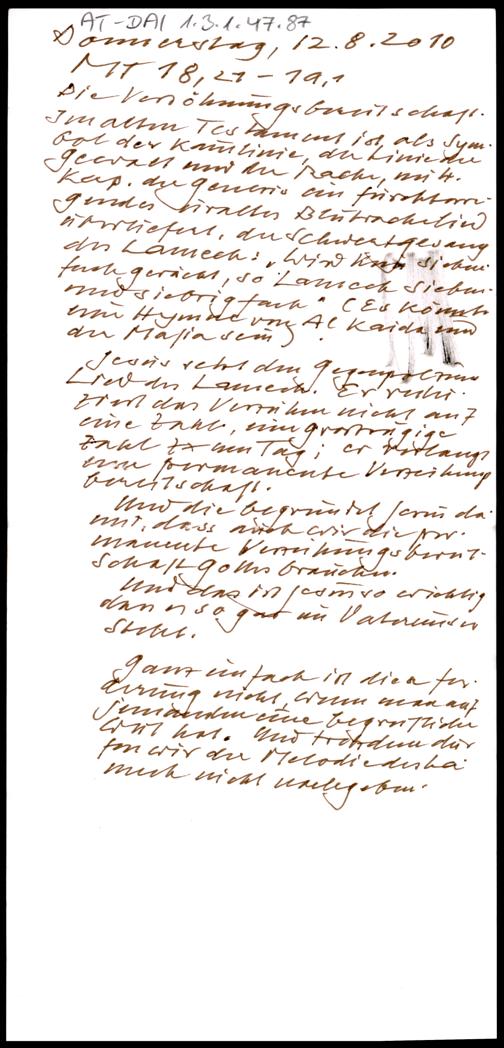 AT-DAI 1.3.1.47.87
Donnerstag, 12.8.2010
MT 18,21-19,1
Die Versöhnungsbereitschaft.
Im alten Testament ist als Sym-
bol der Kainlinie, der Linie der
Gewalt und der Rache, im 4.
Kap. der Genesis ein
uraltes Blutrachelied
überliefert, der Schwertgesang
des Lamech: „Wird Kain sieben
fach gerächt, so Lamech sieben
und siebzigfach". (Es könnte
eine Hymne von Al Kaida und
der Mafia sein).
Jesus setzt den
Lied des Lamech. Er redu-
ziert das Verzeihen nicht auf
eine Zahl, eine grosszügige
Zahl am Tag; er verlangt
eine permanente Verzeihungs
bereitschaft.
Und die begründet Jesus da-
mit, dass auch wir die per-
manente Verzeihungsbereit-
schaft Gottes brauchen.
Und das ist Jesus so wichtig
dass es so gar im Vaterunser
steht.
Ganz einfach ist diese For-
derung nicht, wenn man auf
jemanden eine begreifliche
Wut hat. Und trotzdem dür
fen wir der Melodie des La
mech nicht nachgeben.